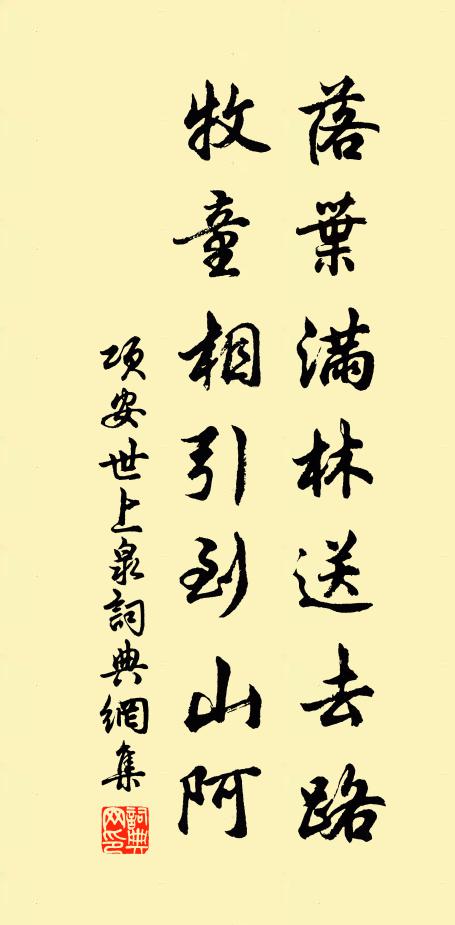 落葉滿林送去路
牧童相引到山阿
項安世上泉詞典網集
詞典网印